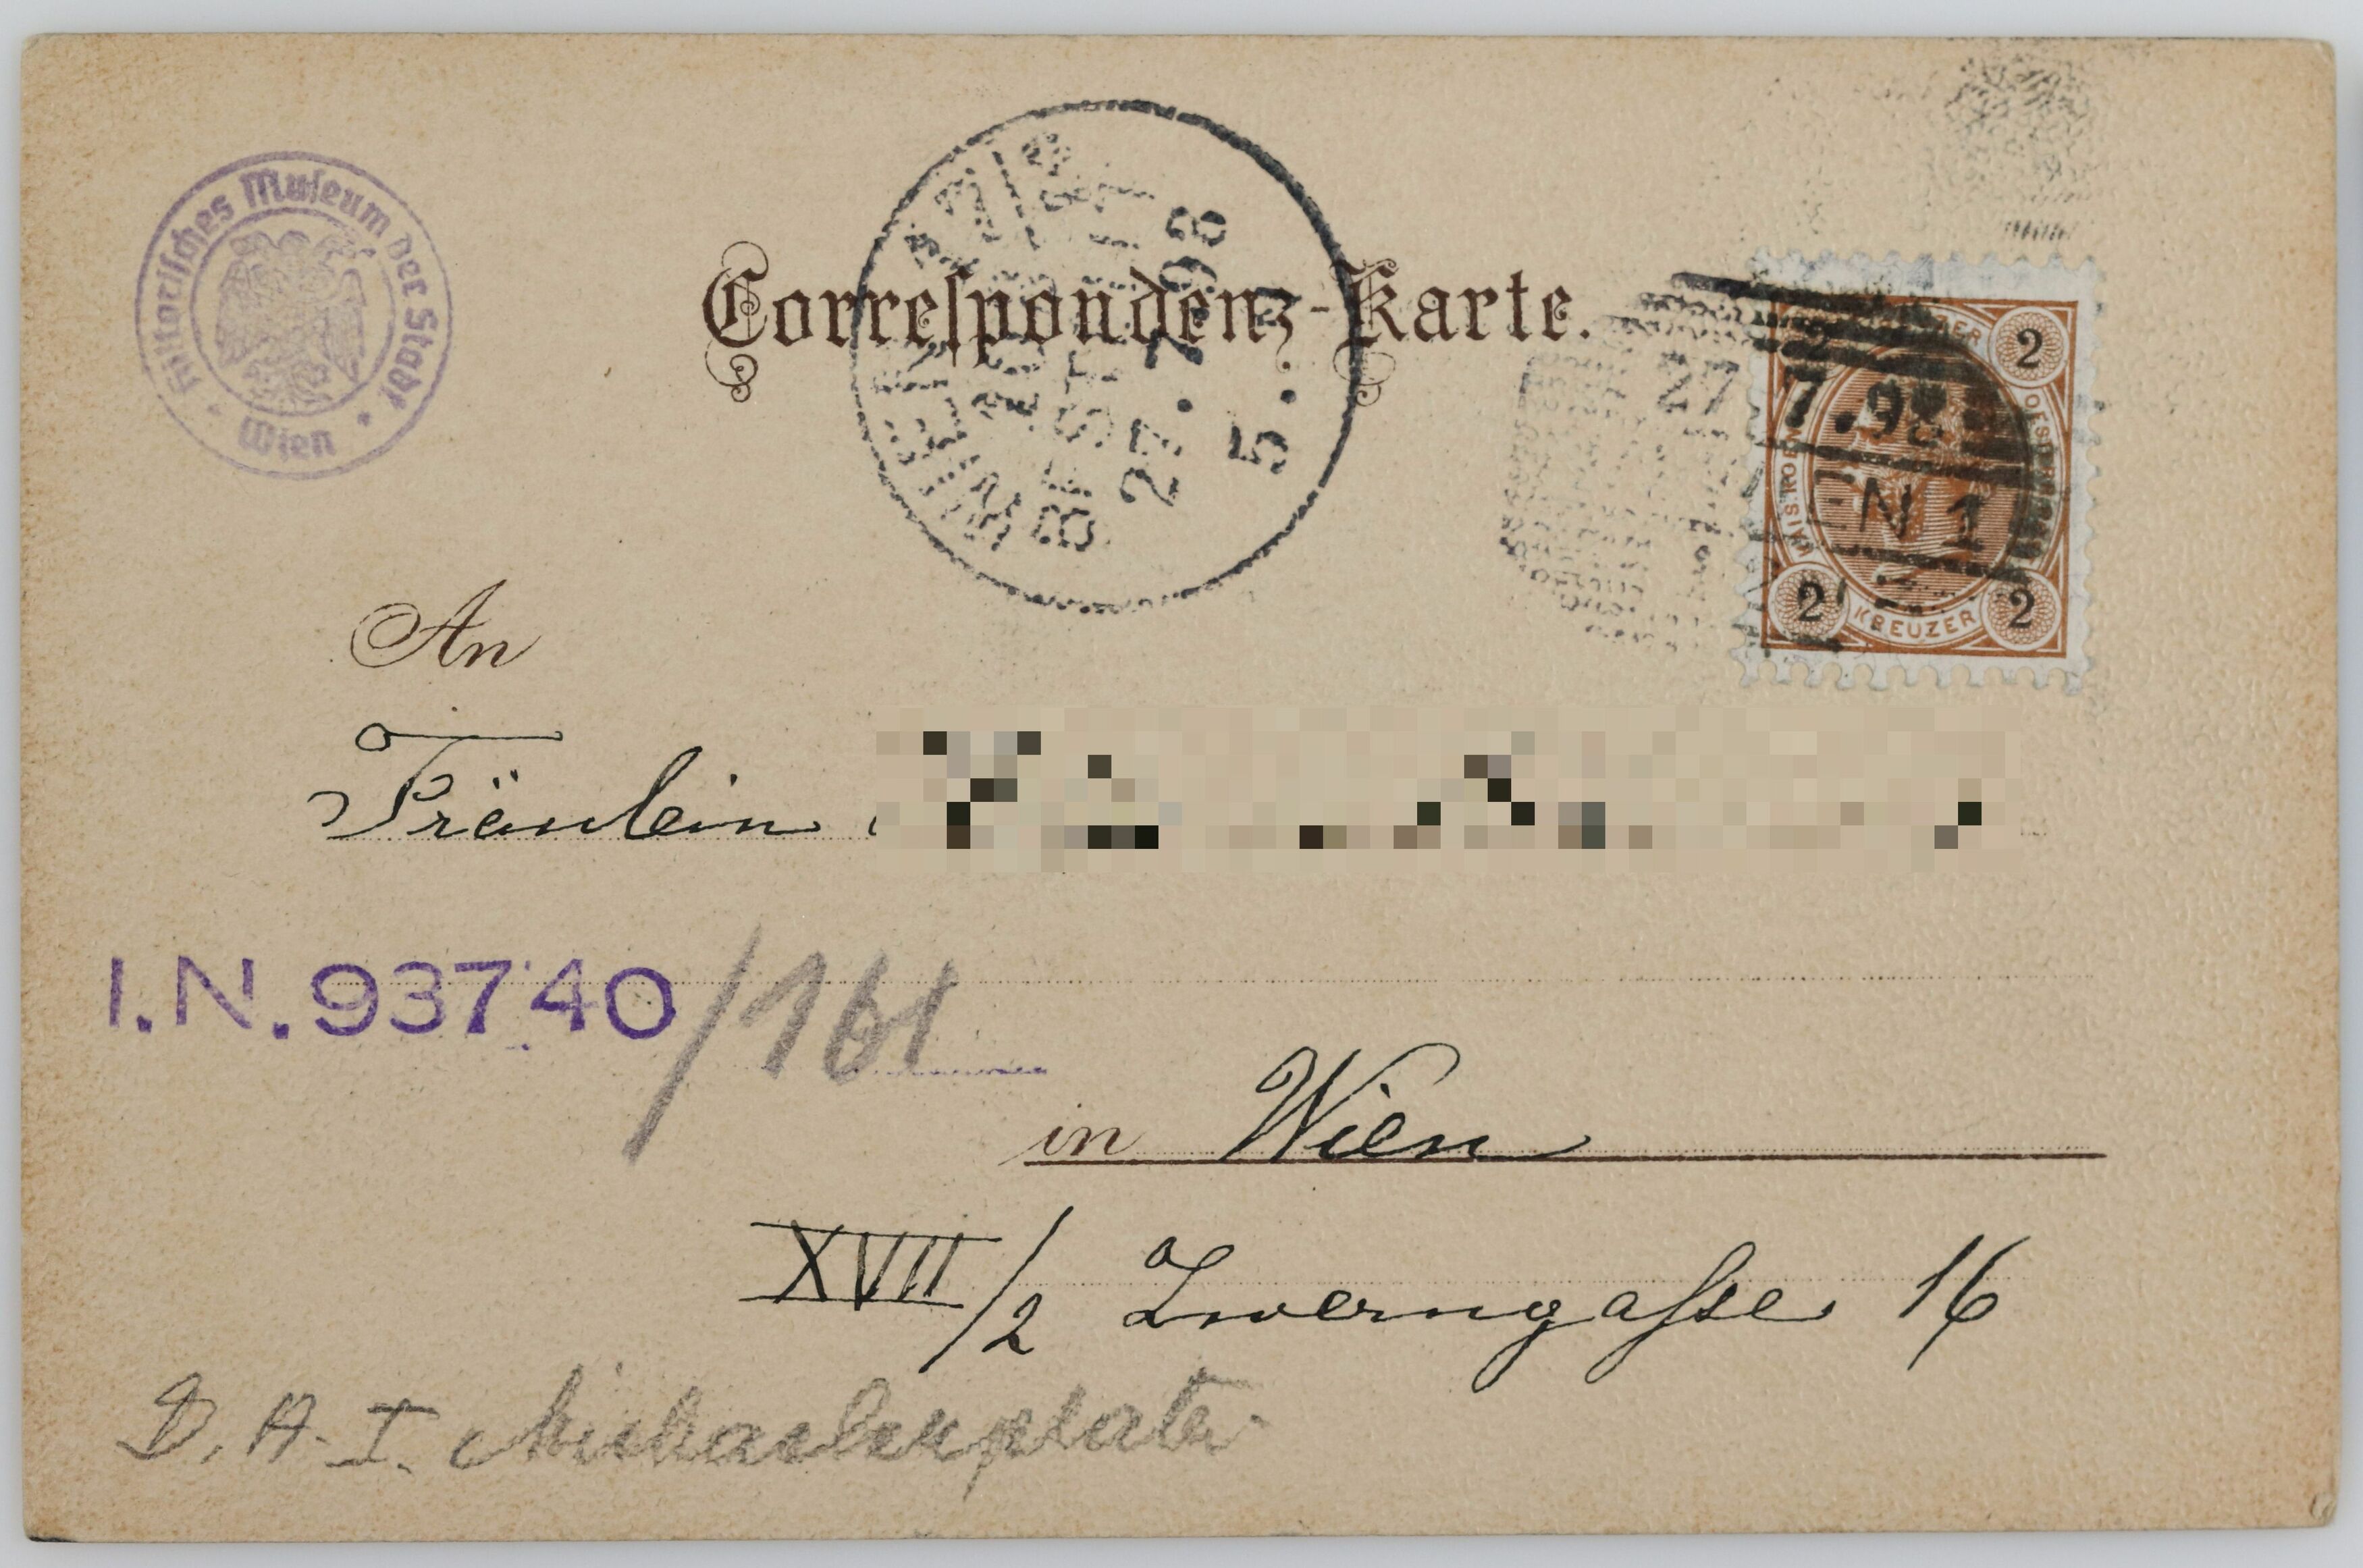 Historisches Museum der Stadt
Wien
Correspondenz-Karte.
17/2
BESTELLT
27. 7. 98
5.
27 7.98
EN 1
2
KREUZER
2 2
An
Fräulein
I.N. 93740/161
in Wien
XVII/2 Zwerngasse 16
D. A. I. Michaelerplatz